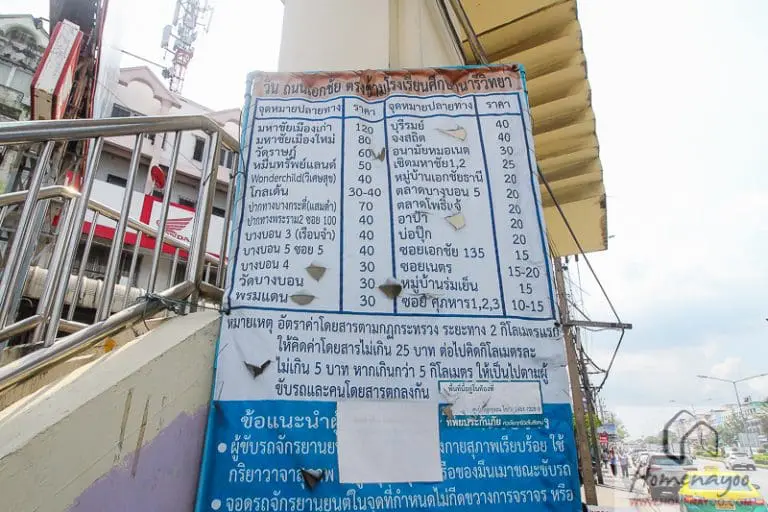 วิน ถนนเอกชัย ตรงข้ามโรงเรียนศึกษานารีวิทยา
จุดหมายปลายทาง ราคา จุดหมายปลายทาง ราคา
มหาชัยเมืองเก่า 120 บุรีรมย์ 40
มหาชัยเมืองใหม่ 80 จงสถิต 40
วัดราษฎ์ 60 อนามัยหมอเนต 30
หมื่นทรัพย์แลนด์ 50 เชิดมหาชัย1,2 25
Wonderchild(วิเศษสุข) 40 หมู่บ้านเอกชัยธานี 20
โกลเด้น 30-40 ตลาดบางบอน 5 20
ปากทางบางกระดี่(แสมดำ) 70 ตลาดโพธิ์แจ้ 20
ปากทางพระราม2 ซอย 100 40 อาป๊า 20
บางบอน 3 (เรือนจำ) 40 บ่อปุ๊ก 20
บางบอน 5 ซอย 5 40 ซอยเอกชัย 135 15
บางบอน 4 30 ซอยเนตร 15-20
วัดบางบอน 30 หมู่บ้านร่มเย็น 15
พรมแดน 30 ซอย ศุภหาร1,2,3 10-15
หมายเหตุ อัตราค่าโดยสารตามกฎกระทรวง ระยะทาง 2 กิโลเมตรแรก
ให้คิดค่าโดยสารไม่เกิน 25 บาท ต่อไปคิดกิโลเมตรละ
ไม่เกิน 5 บาท หากเกินกว่า 5 กิโลเมตร ให้เป็นไปตามผู้
ขับรถและคนโดยสารตกลงกัน
พื้นที่นี้อยู่ในท้องที่
ทิพยประกันภัย
ข้อแนะนำ
• ผู้ขับรถจักรยานย กายสุภาพเรียบร้อย ใช้
กริยาวาจา หรือของมึนเมาขณะขับรถ
• จอดรถจักรยานยนต์ในจุดที่กำหนดไม่กีดขวางการจราจร หรือ
HONDA
Homenayoo
WWW.HOMENAYOO.COM